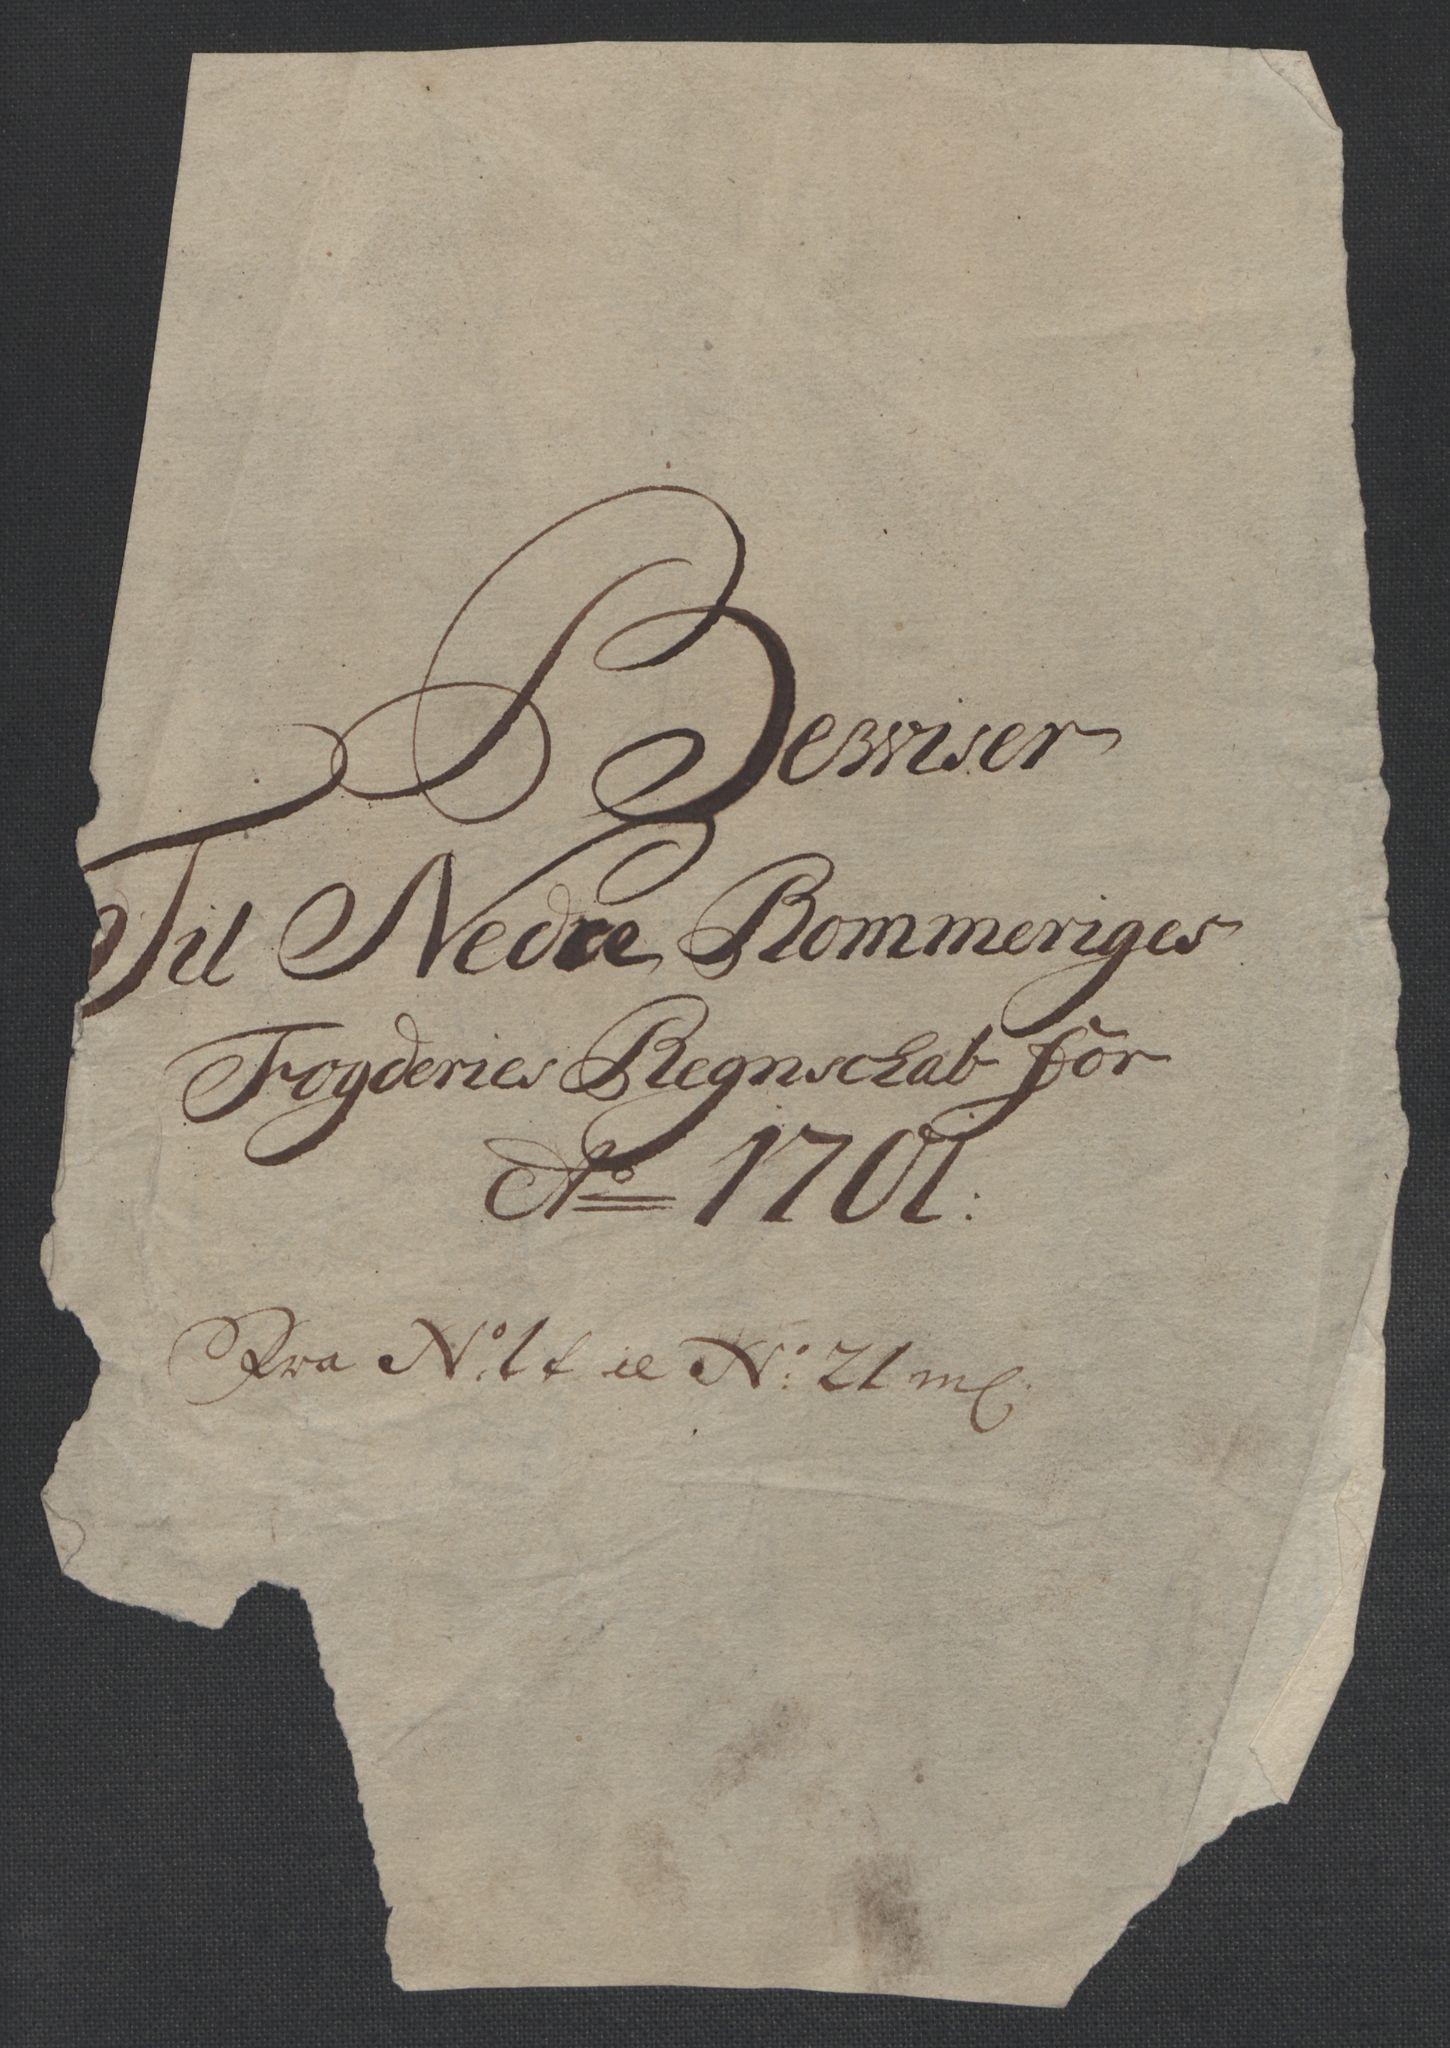 Bewiser
Til Nedre Rommeriges
Fogderies Regnschab för
Ao 1701:
Fra No: 1 til No: 21